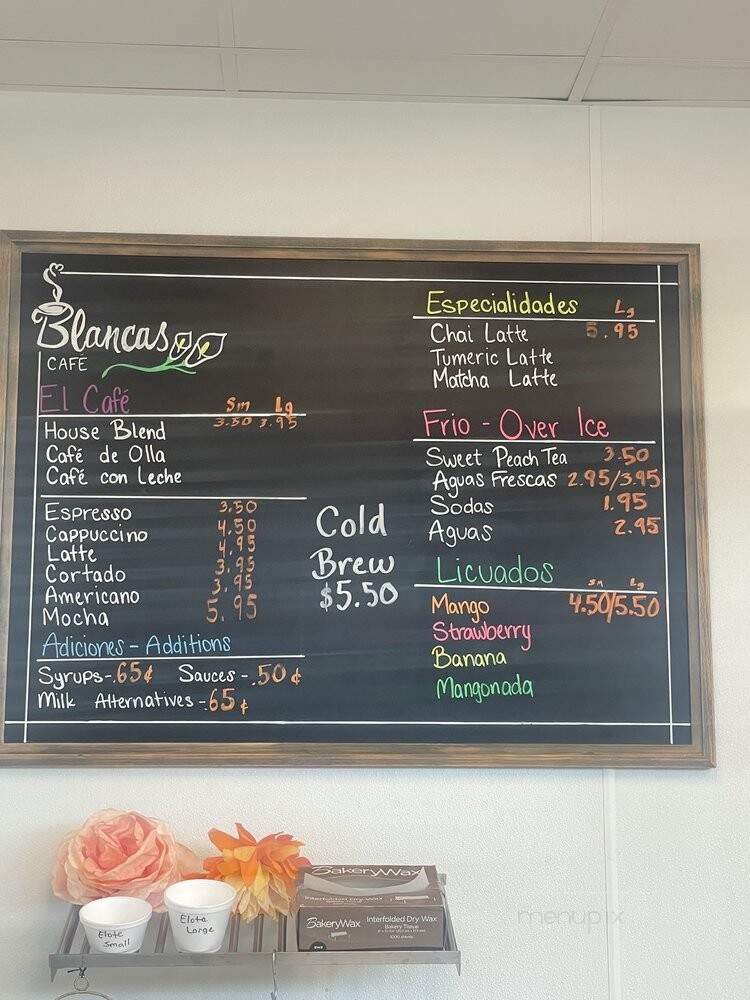 Blancas
CAFE
El Café Sm Lg
3.50 3.95
House Blend
Café de Olla
Café con Leche
Espresso 3.50
Cappuccino 4.50
Latte 4.95
Cortado 3.95
Americano 3.95
Mocha 5.95
Adiciones - Additions
Syrups - .65¢ Sauces - .50¢
Milk Alternatives - .65¢
Cold
Brew
$5.50
Especialidades Lg
Chai Latte 5.95
Tumeric Latte
Matcha Latte
Frio - Over Ice
Sweet Peach Tea 3.50
Aguas Frescas 2.95/3.95
Sodas 1.95
Aguas 2.95
Licuados Sm Lg
Mango 4.50/5.50
Strawberry
Banana
Mangonada
Elote
Small
Elote
Large
BakeryWax
Interfolded Dry Wax
BakeryWax Interfolded Dry Wax
Bakery Tissue
menupix